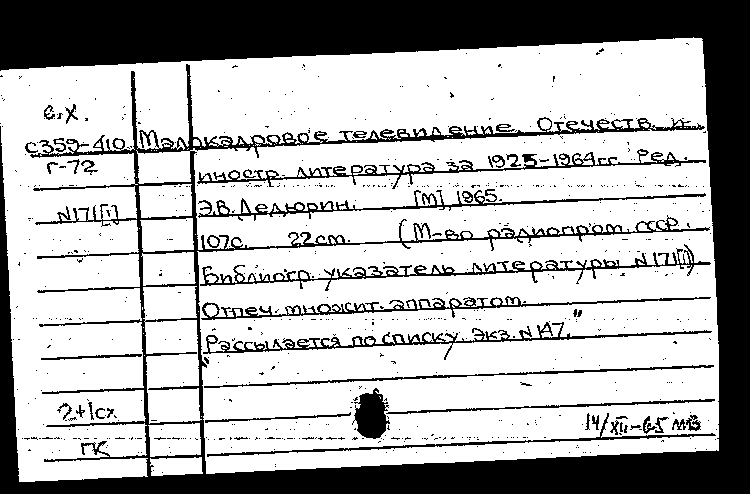 е.х.
с359-410 Малокадровое телевидение. Отечеств. и
г-72 иностр. литература за 1925-1964гг. Ред.
N171[1] Э.В. Дедюрин. [М], 1965.
107с. 22см. (М-во радиопром. СССР.
Библиогр. указатель литературы N171[1]).
Отпеч. множит. аппаратом.
"Рассылается по списку. Экз. N147."
2+1сх
14/XII-65
ГК